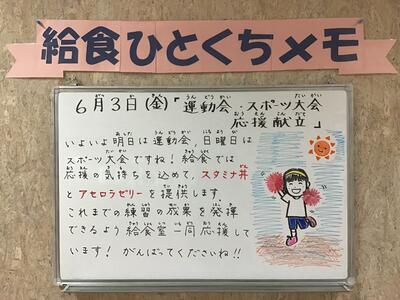 給食ひとくちメモ
6月3日(金)「運動会・スポーツ大会
応援献立」
いよいよ明日は運動会、日曜日は
スポーツ大会ですね!給食では
応援の気持ちを込めて、スタミナ丼
とアセロラゼリーを提供します。
これまでの練習の成果を発揮
できるよう給食室一同応援して
います!がんばってくださいね!!